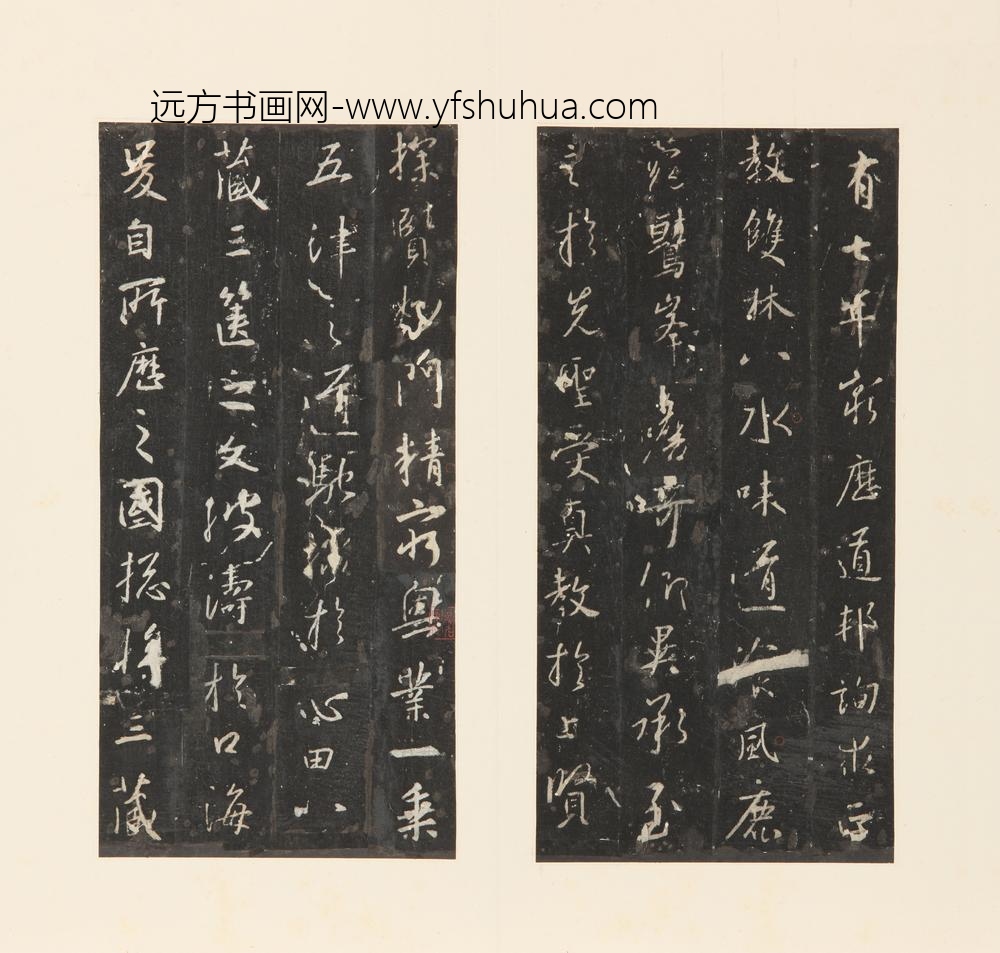 远方书画网-www.yfshuhua.com
有七年窮歷道邦詢求正
教雙林八水味道飡風鹿
菀鷲峯瞻奇仰異承至
言於先聖受真教於上賢
探賾妙門精窮奧業一乘
五津之道馳驟於心田八
藏三篋之文波濤於口海
爰自所歷之國總將三藏